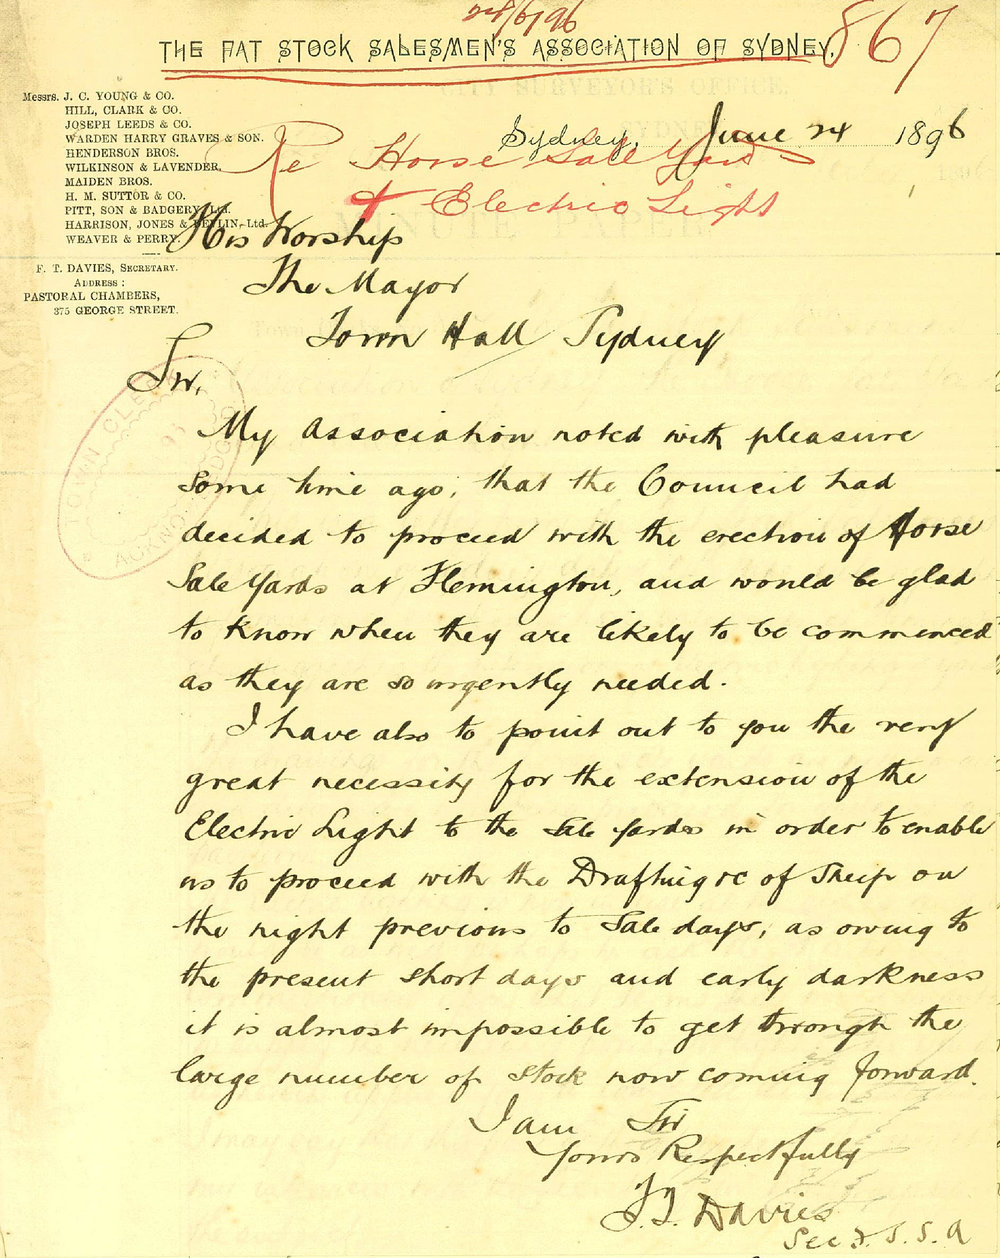 24/6/96
867
THE FAT STOCK SALESMEN'S ASSOCIATION OF SYDNEY.
Messrs. J. C. YOUNG & CO.
HILL, CLARK & CO.
JOSEPH LEEDS & CO.
WARDEN HARRY GRAVES & SON.
HENDERSON BROS.
WILKINSON & LAVENDER.
MAIDEN BROS.
H. M. SUTTOR & CO.
PITT, SON & BADGERY, Ltd.
HARRISON, JONES & DEVLIN, Ltd.
WEAVER & PERRY.
F. T. DAVIES, SECRETARY.
ADDRESS:
PASTORAL CHAMBERS,
375 GEORGE STREET.
Sydney, June 24 1896
Re Horse Sale Yards
& Electric Light
His Worship
The Mayor
Town Hall Sydney
Sir,
TOWN CLERK
My Association noted with pleasure
some time ago, that the Council had
decided to proceed with the erection of Horse
Sale Yards at Flemington, and would be glad
to know when they are likely to be commenced
as they are so urgently needed.
I have also to point out to you the very
great necessity for the extension of the
Electric Light to the Sale Yards in order to enable
us to proceed with the Drafting &c of Sheep on
the night previous to Sale days, as owing to
the present short days and early darkness
it is almost impossible to get through the
large number of stock now coming forward.
I am Sir
Yours Respectfully
F. T. Davies
Sec F. S. S. A
CITY SURVEYOR'S OFFICE,
MINUTE PAPER